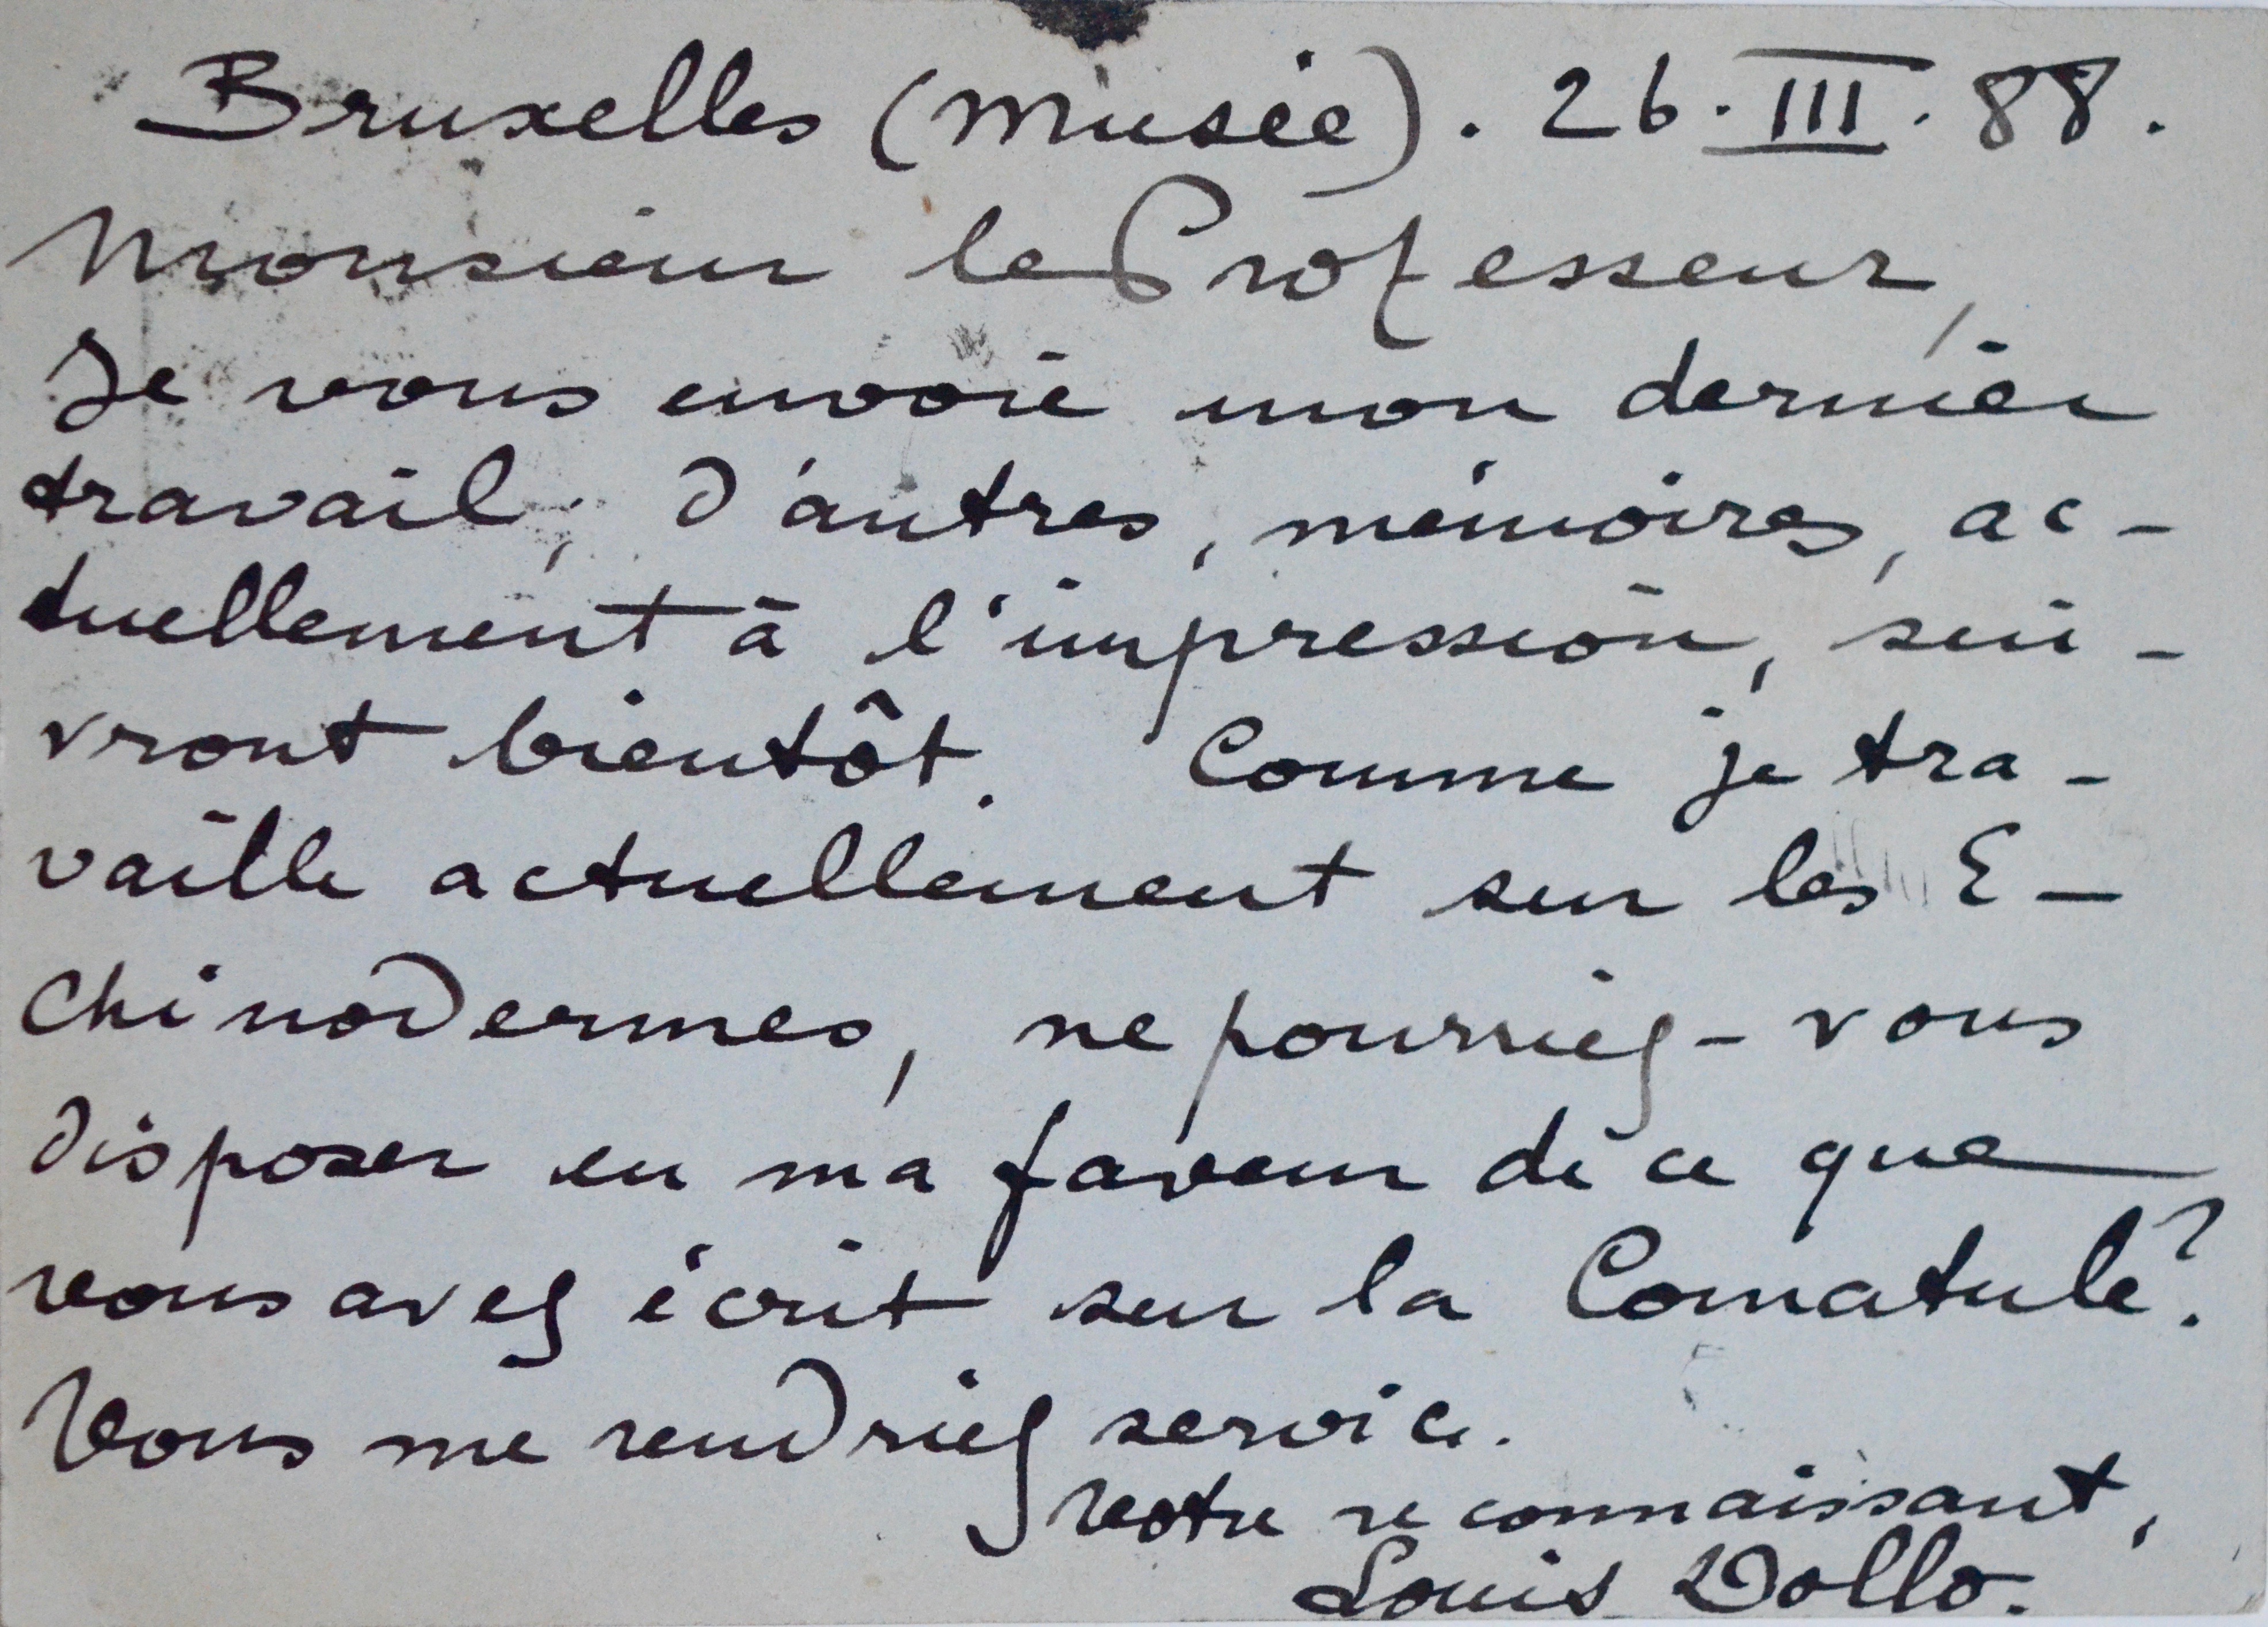 Bruxelles (Musée). 26.III.88.
Monsieur le Professeur,
Je vous envoie mon dernier
travail; d'autres, mémoires, ac-
tuellement à l'impression, sui-
vront bientôt. Comme je tra-
vaille actuellement sur les E-
chinodermes, ne pourriez-vous
disposer en ma faveur de ce que
vous avez écrit sur la Comatule?
Vous me rendriez service.
Votre reconnaissant,
Louis Dollo.